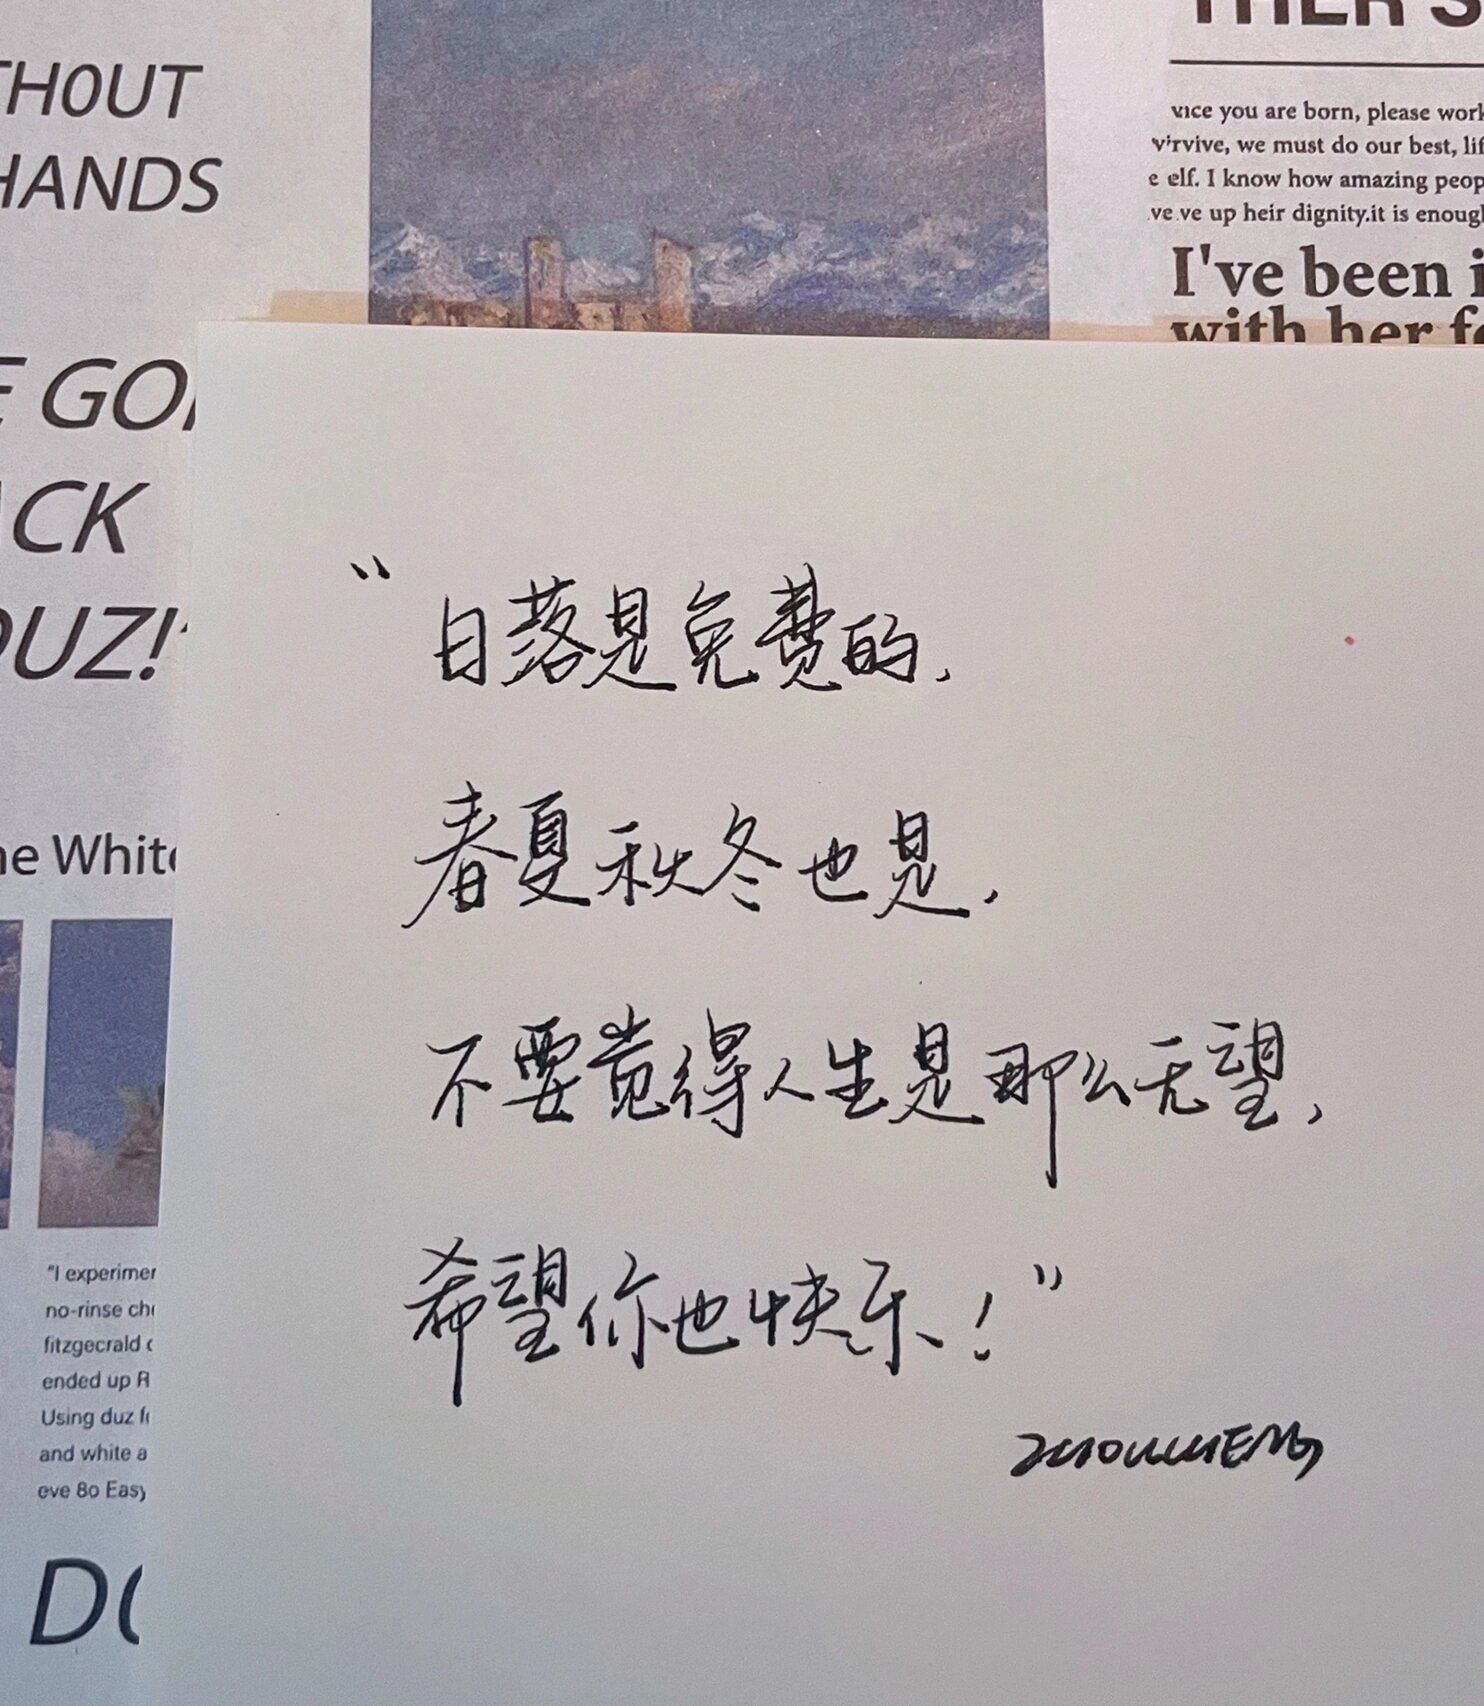 THOUT
HANDS
E GO
ACK
DUZ!"
he White
"I experimer
no-rinse
fitzgecrald
ended up R
Using duz
and white a
eve 8o Easy
THER S
vice you are born, please work
v'rvive, we must do our best, lif
e elf. I know how amazing peop
ve.ve up heir dignity.it is enough
I've been i
with her fe
“日落是免费的,
春夏秋冬也是,
不要觉得人生是那么无望,
希望你也快乐!”